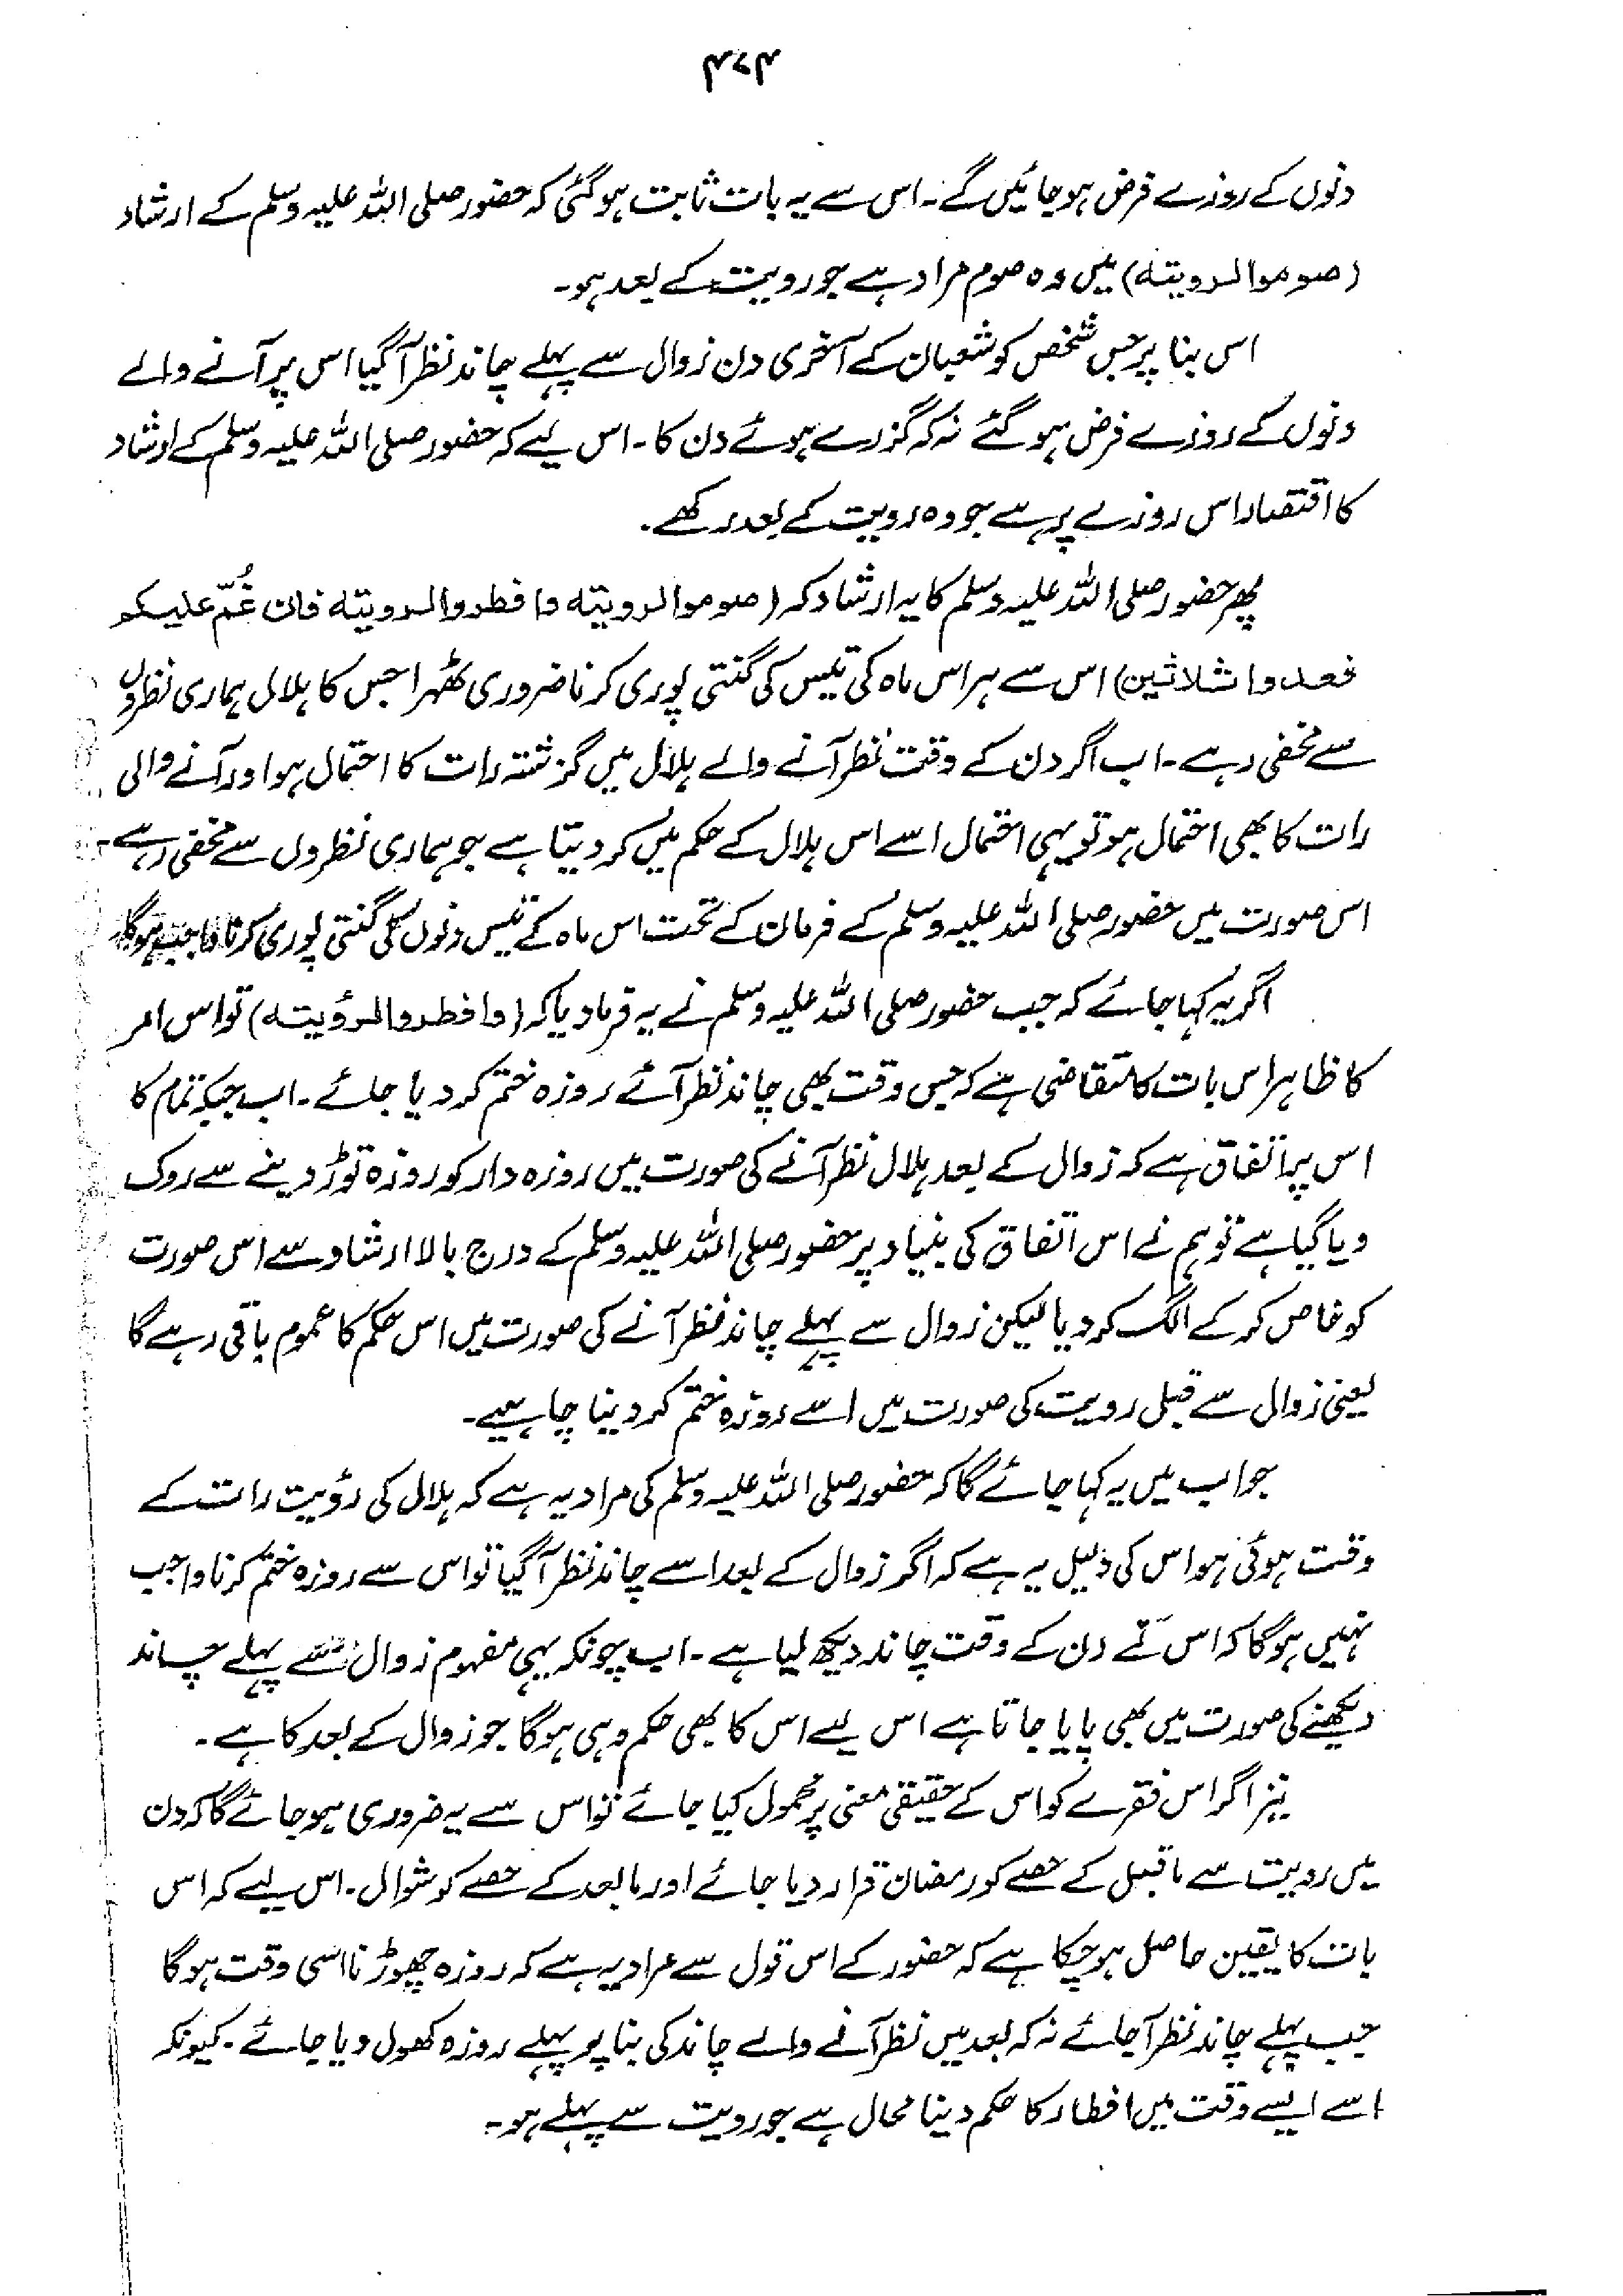 ۴۷۴
دنوں کے روزے فرض ہوجائیں گے۔ اس سے یہ بات ثابت ہوگئی کہ حضور صلی اللہ علیہ وسلم کے ارشاد
(صوموا لرویتہ) میں وہ صوم مراد ہے جو رویت کے بعد ہو۔
اس بنا پر جس شخص کو شعبان کے آخری دن زوال سے پہلے چاند نظر آگیا اس پر آنے والے
دنوں کے روزے فرض ہوگئے نہ کہ گزرے ہوئے دن کا۔ اس لیے کہ حضور صلی اللہ علیہ وسلم کے ارشاد
کا اقتصار اس روزے پر ہے جو وہ رویت کے بعد رکھے۔
پھر حضور صلی اللہ علیہ وسلم کا یہ ارشاد کہ (صوموا لرویتہ وافطروا لرویتہ فان غُمّ علیکم
فعدوا ثلاثین) اس سے ہر اس ماہ کی تیس کی گنتی پوری کرنا ضروری ٹھہرا جس کا ہلال ہماری نظروں
سے مخفی رہے۔ اب اگر دن کے وقت نظر آنے والے ہلال میں گزشتہ رات کا احتمال ہو اور آنے والی
رات کا بھی احتمال ہو تو یہی احتمال اسے اس ہلال کے حکم میں کر دیتا ہے جو ہماری نظروں سے مخفی رہے۔
اس صورت میں حضور صلی اللہ علیہ وسلم کے فرمان کے تحت اس ماہ کے تیس دنوں کی گنتی پوری کرنا واجب ہوگا۔
اگر یہ کہا جائے کہ جب حضور صلی اللہ علیہ وسلم نے یہ فرما دیا کہ (وافطروا لرؤیتہ) تو اس امر
کا ظاہر اس بات کا متقاضی ہے کہ جس وقت بھی چاند نظر آئے روزہ ختم کر دیا جائے۔ اب جبکہ تمام کا
اس پر اتفاق ہے کہ زوال کے بعد ہلال نظر آنے کی صورت میں روزہ دار کو روزہ توڑ دینے سے روک
دیا گیا ہے تو ہم نے اس اتفاق کی بنیاد پر حضور صلی اللہ علیہ وسلم کے درج بالا ارشاد سے اس صورت
کو خاص کر کے الگ کر دیا لیکن زوال سے پہلے چاند نظر آنے کی صورت میں اس حکم کا عموم باقی رہے گا
یعنی زوال سے قبل رویت کی صورت میں اسے روزہ ختم کر دینا چاہیے۔
جواب میں یہ کہا جائے گا کہ حضور صلی اللہ علیہ وسلم کی مراد یہ ہے کہ ہلال کی رؤیت رات کے
وقت ہوئی ہو اس کی دلیل یہ ہے کہ اگر زوال کے بعد اسے چاند نظر آگیا تو اس سے روزہ ختم کرنا واجب
نہیں ہوگا کہ اس نے دن کے وقت چاند دیکھ لیا ہے۔ اب چونکہ یہی مفہوم زوال سے پہلے چاند
دیکھنے کی صورت میں بھی پایا جاتا ہے اس لیے اس کا بھی حکم وہی ہوگا جو زوال کے بعد کا ہے۔
نیز اگر اس فقرے کو اس کے حقیقی معنی پر محمول کیا جائے تو اس سے یہ ضروری ہوجائے گا کہ دن
میں رویت سے ماقبل کے حصے کو رمضان قرار دیا جائے اور مابعد کے حصے کو شوال۔ اس لیے کہ اس
بات کا یقین حاصل ہوچکا ہے کہ حضور کے اس قول سے مراد یہ ہے کہ روزہ چھوڑنا اسی وقت ہوگا
جب پہلے چاند نظر آجائے نہ کہ بعد میں نظر آنے والے چاند کی بنا پر پہلے روزہ کھول دیا جائے۔ کیونکہ
اسے ایسے وقت میں افطار کا حکم دینا محال ہے جو رویت سے پہلے ہو۔